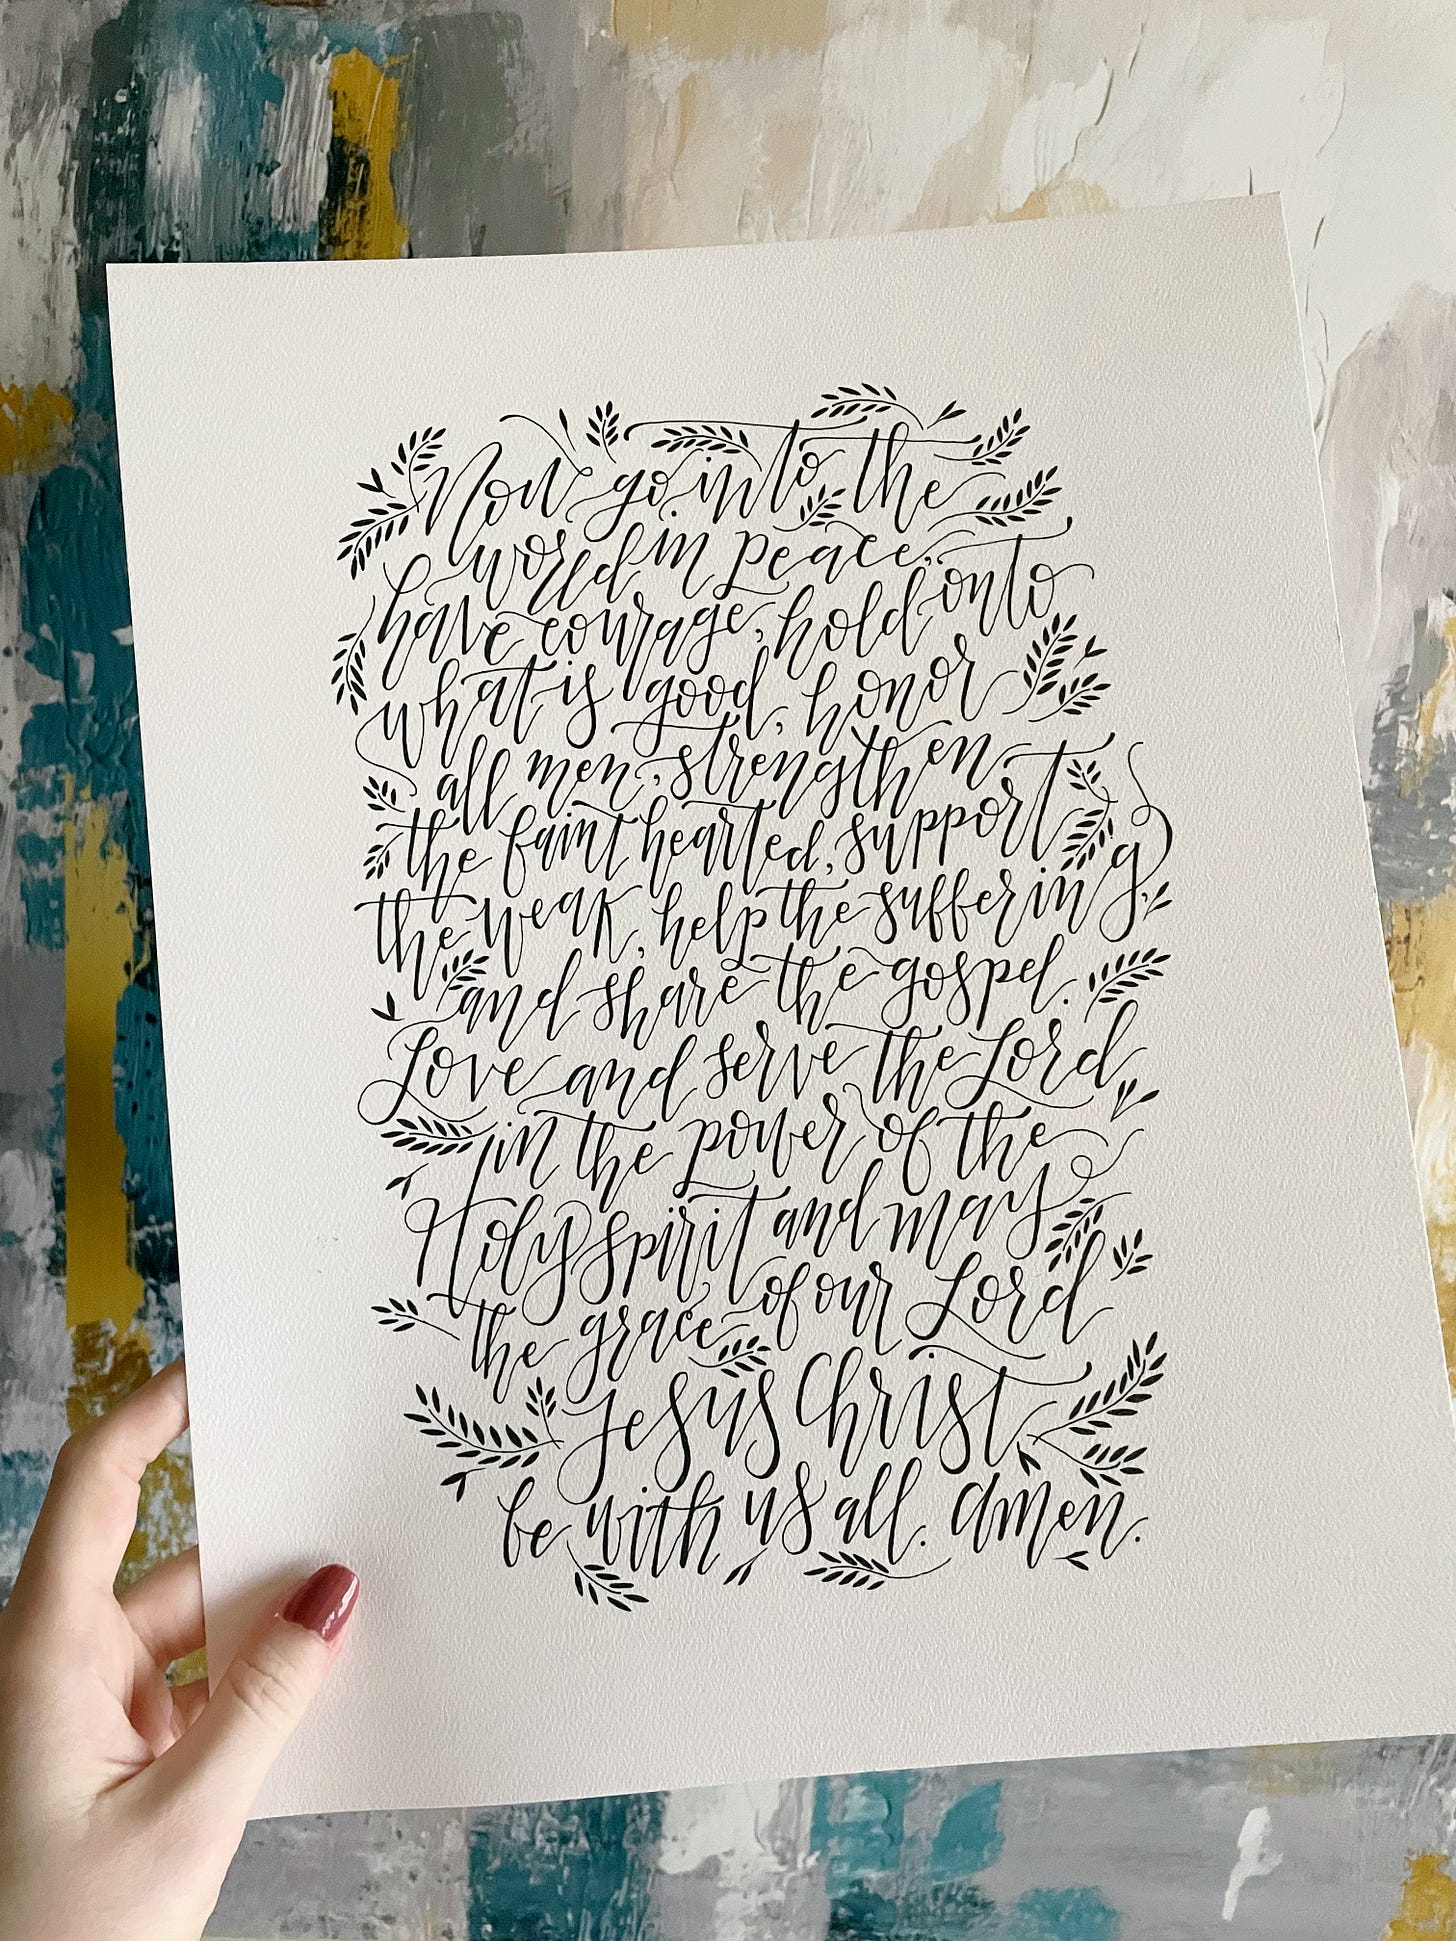 Now go into the
world in peace,
have courage, hold onto
what is good, honor
all men, strengthen
the faint hearted, support
the weak, help the suffering,
and share the gospel.
Love and serve the Lord
in the power of the
Holy Spirit and may
the grace of our Lord
Jesus Christ
be with us all. Amen.